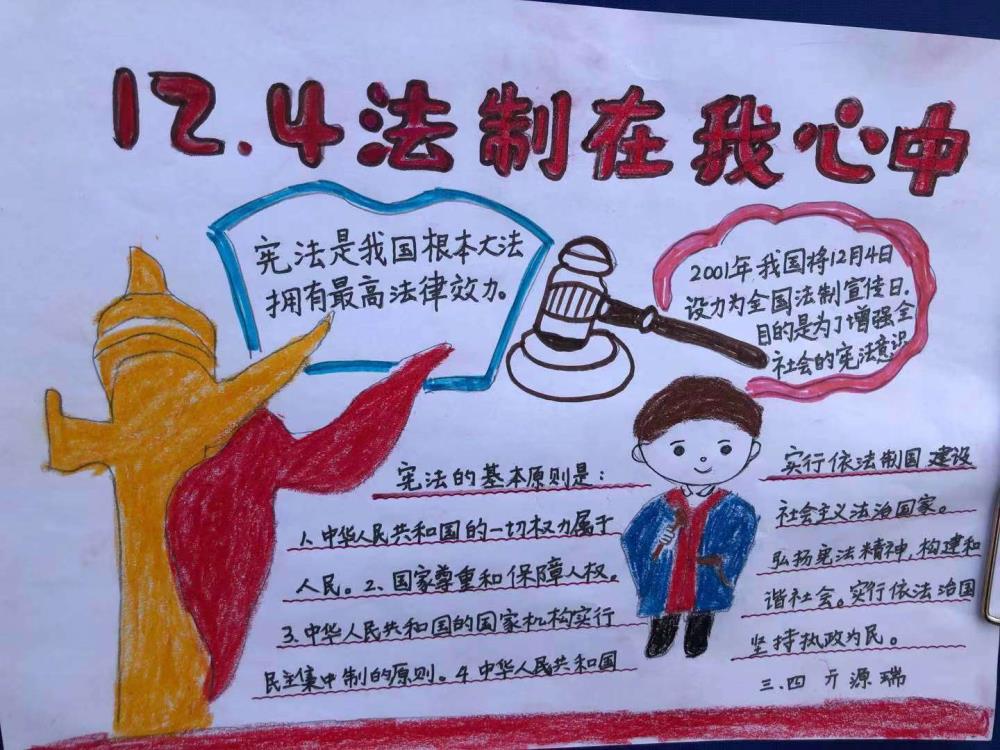 12.4法制在我心中
宪法是我国根本大法
拥有最高法律效力。
2001年我国将12月4日
设力为全国法制宣传日.
目的是为了增强全
社会的宪法意识
宪法的基本原则是：
1.中华人民共和国的一切权力属于
人民。2、国家尊重和保障人权。
3.中华人民共和国的国家机构实行
民主集中制的原则。4.中华人民共和国
实行依法制国建设
社会主义法治国家。
弘扬宪法精神,构建和
谐社会。实行依法治国
坚持执政为民。
三.四 亓源瑞